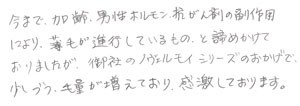 今まで、加齢、男性ホルモン、抗がん剤の副作用
により、薄毛が進行しているもの、と諦めかけて
おりましたが、御社のノヴェルモイシリーズのおかげで、
少しづつ、毛量が増えており、感激しております。